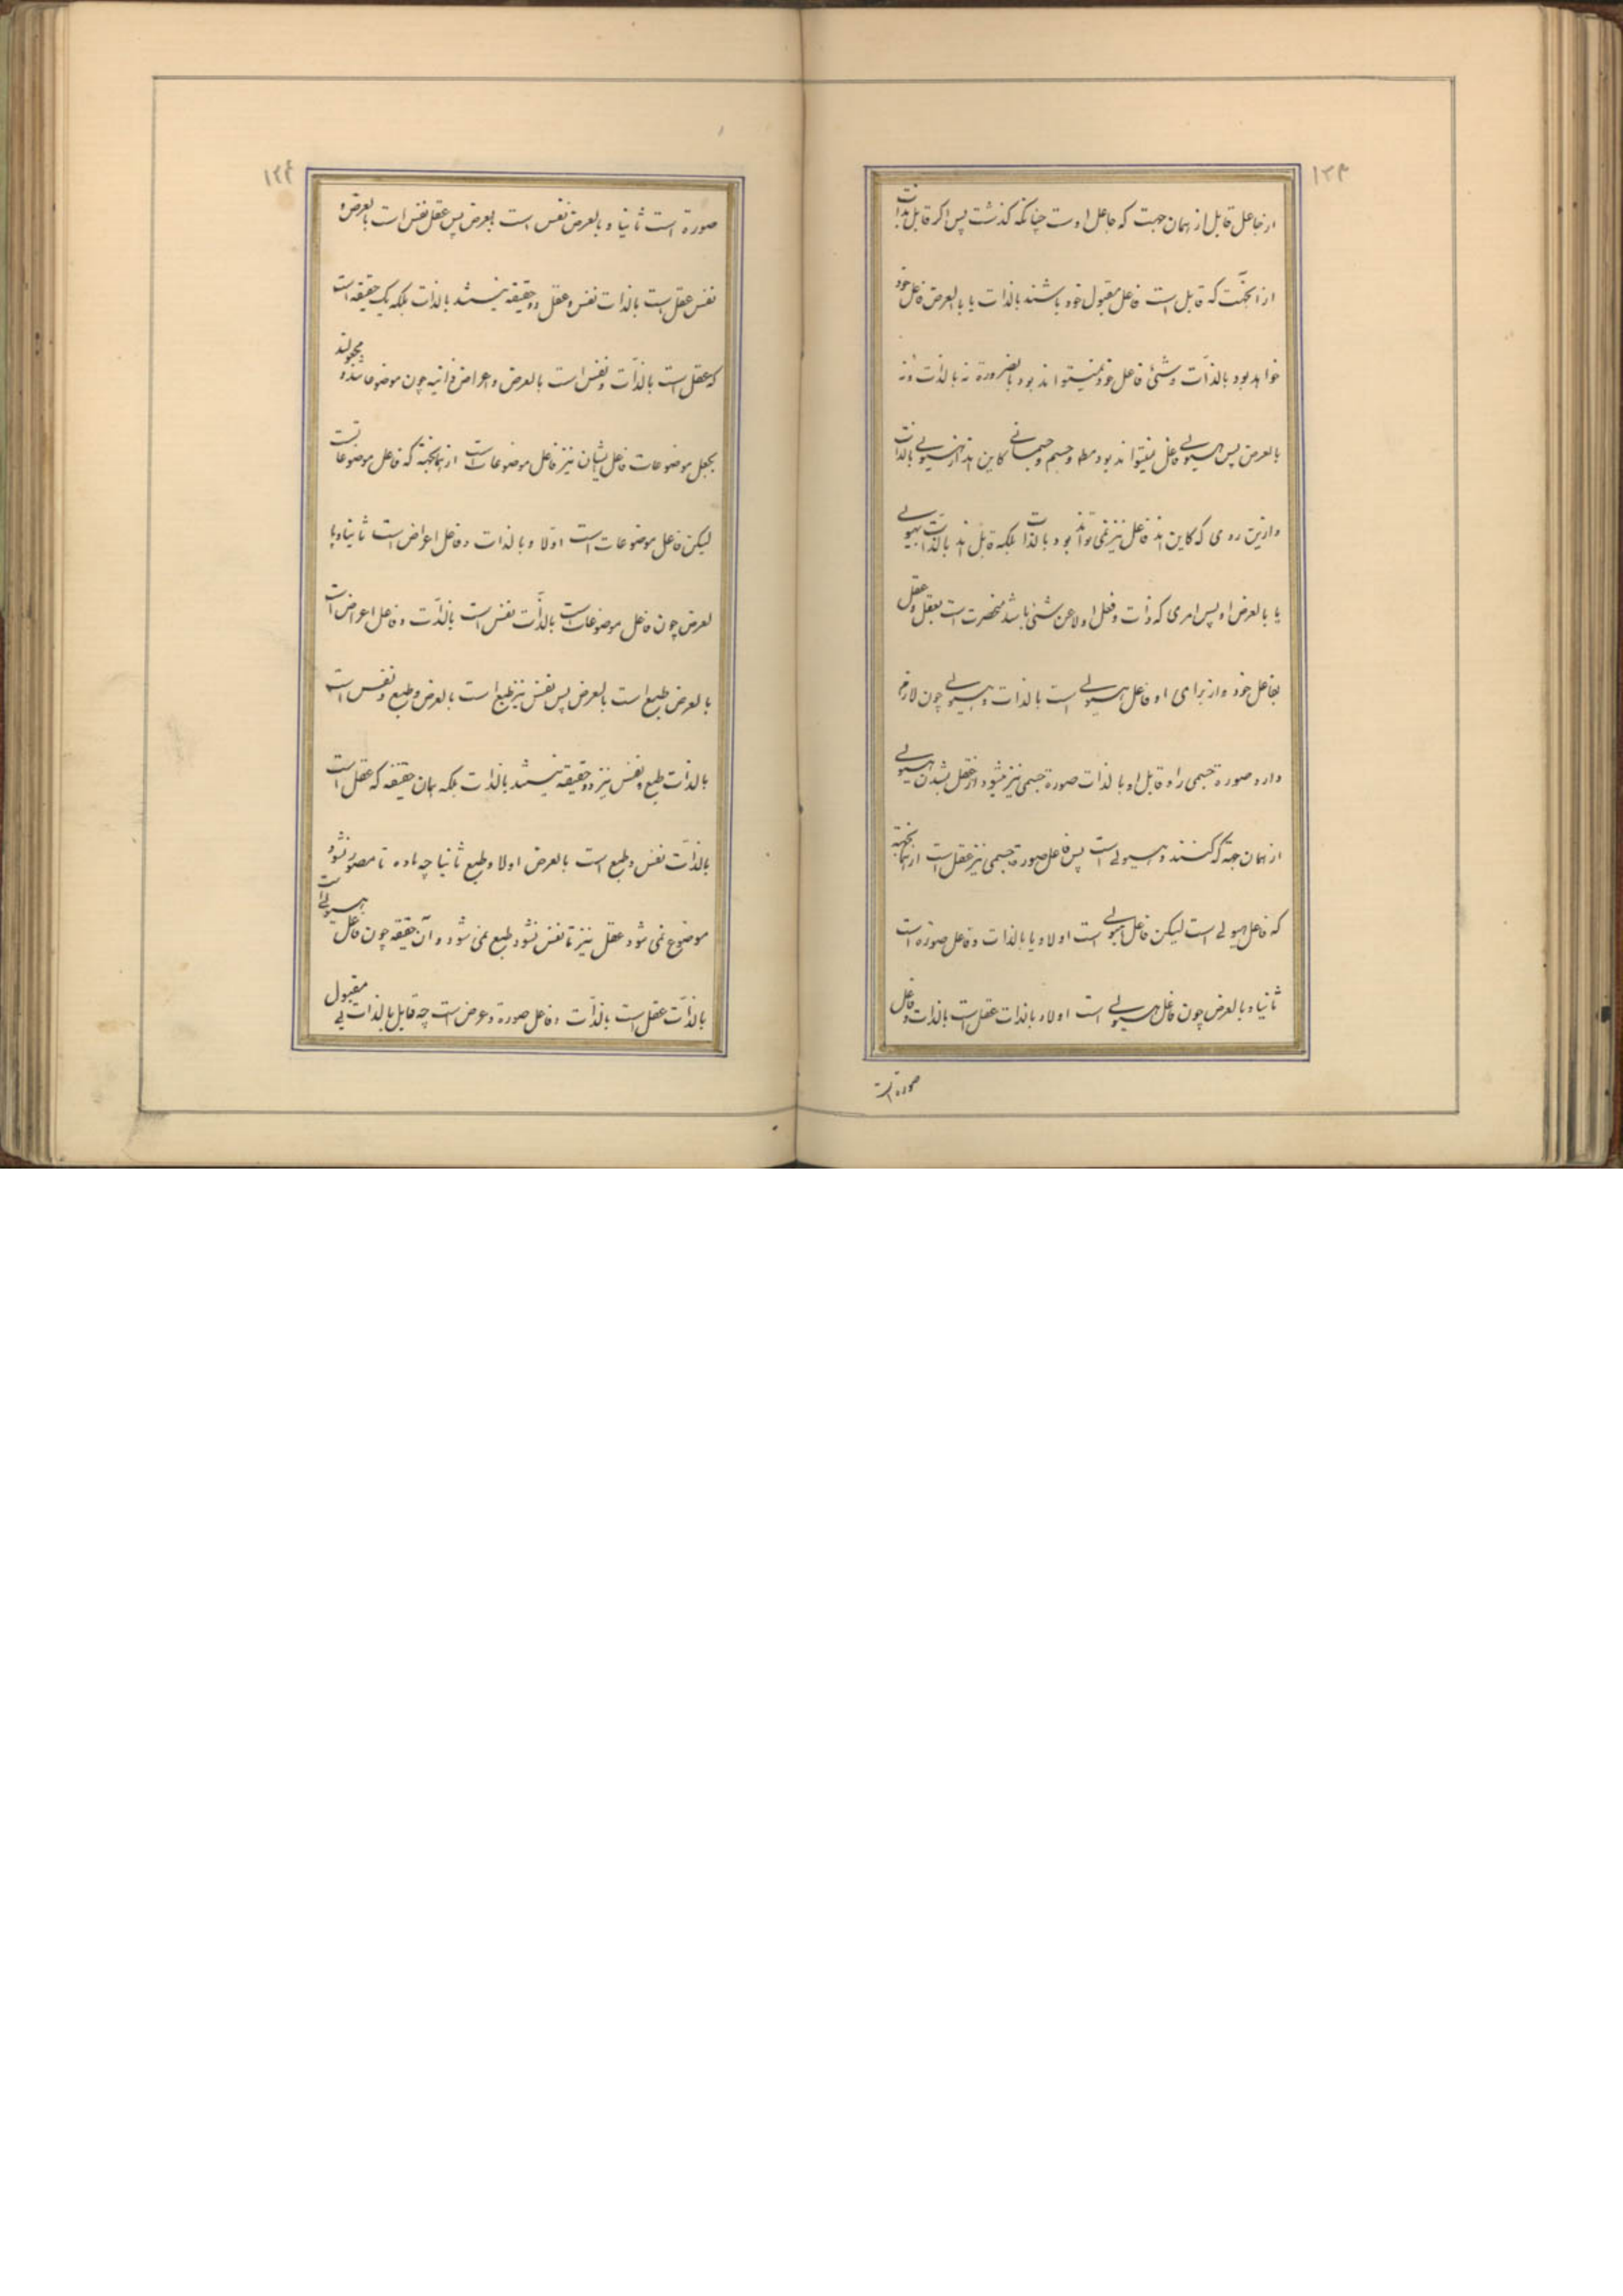 ۱۲۳
از جاعل قابل از همان جهت که جاعل اوست چنانکه گذشت پس اگر قابل بذات
از انجهت که قابل است فاعل مقبول خود باشند بالذات یا بالعرض فاعل خود
خواهد بود بالذات و شئ فاعل خود نمیتواند بود بالضرورة نه بالذات و نه
بالعرض پس هیولی فاعل نمیتواند بود مط و جسم و جسمانی کاین اند از هیولی بالذات
و ازین روی که کاین اند فاعل نیز نمی توانند بود بالذات بلکه قابل اند بالذات هیولی
یا بالعرض او پس امری که ذات و فعل او لا عن شئ باشد منحصرست بعقل و عقل
بفاعل خود و از برای او فاعل هیولی است بالذات و هیولی چون لازم
دارد صورة جسمی را و قابل او بالذات صورة جسمی نیز میشود از عقل بشدن هیولی
از همان جهة که کنند هیولی است پس فاعل صورة جسمی نیز عقل است از همانجهة
که فاعل هیولی است لیکن فاعل هیولی است اولا و یا بالذات و فاعل صورة است
ثانیا و بالعرض چون فاعل هیولی است اولا و بالذات عقل است بالذات و فاعل
صورة است
۱۲۴
صورة است ثانیا و بالعرض نفس است بالعرض پس عقل نفس است بالعرض و
نفس عقل است بالذات نفس و عقل دو حقیقه نیستند بالذات بلکه یک حقیقه است
که عقل است بالذات و نفس است بالعرض و اعراض ذاتیه چون موضوعاتند و مجعولند
بجعل موضوعات فاعل ایشان نیز فاعل موضوعات است از همانجهة که فاعل موضوعاتست
لیکن فاعل موضوعات است اولا و بالذات و فاعل اعراض است ثانیا و با
لعرض چون فاعل موضوعات است بالذات نفس است بالذات و فاعل اعراض است
بالعرض طبع است بالعرض پس نفس نیز طبع است بالعرض و طبع و نفس است
بالذات طبع و نفس نیز دو حقیقه نیستند بالذات بلکه همان حقیقه که عقل است
بالذات نفس و طبع است بالعرض اولا و طبع ثانیا چه ماده تا مصور نشود
موضوع نمی شود عقل نیز تا نفس نشود طبع نمی شود و آن حقیقه چون فاعل هیولی است
بالذات عقل است بالذات و فاعل صورة و عرض است چه قابل بالذات بی مقبول